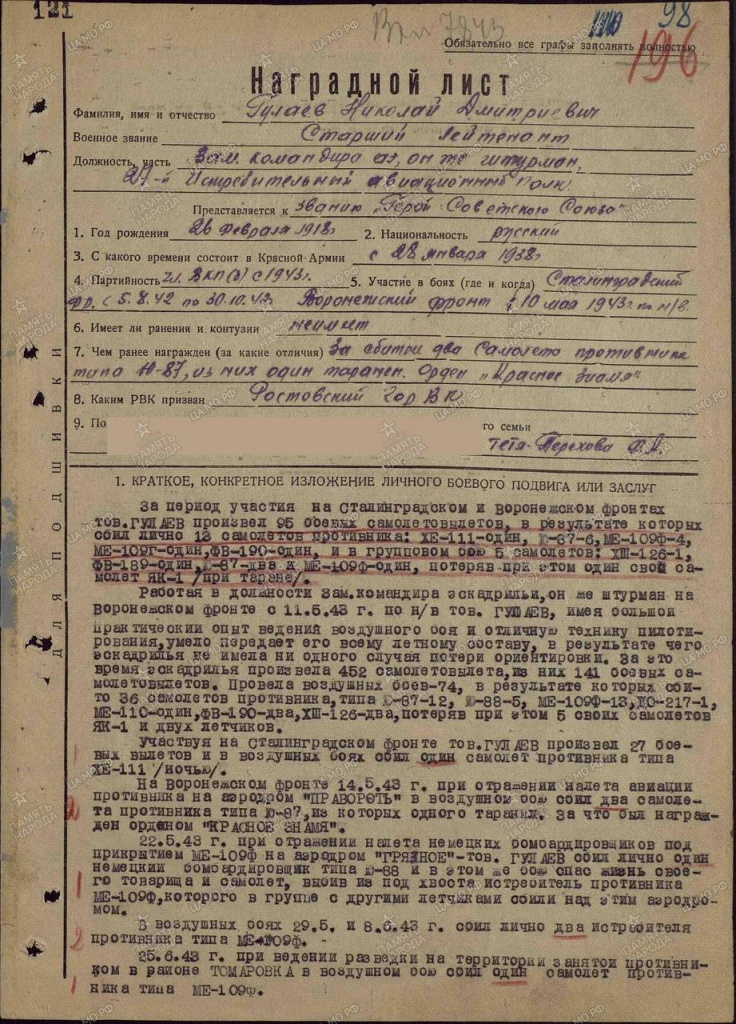 121
98
196
Обязательно все графы заполнять полностью
Наградной лист
Фамилия, имя и отчество Гулаев Николай Дмитриевич
Военное звание Старший Лейтенант
Должность, часть Зам. командира аэ, он же штурман,
27-й Истребительный авиационный полк.
Представляется к званию „Герой Советского Союза"
1. Год рождения 26 февраля 1918г 2. Национальность русский
3. С какого времени состоит в Красной Армии с 28 января 1938г
4. Партийность чл. ВКП(б) с 1943г. 5. Участие в боях (где и когда) Сталинградский
фр. с 5.8.42 по 30.10.42 Воронежский фронт с 10 мая 1943г по н/в.
6. Имеет ли ранения и контузии неимеет
7. Чем ранее награжден (за какие отличия) За сбитые два самолета противника
типа Ю-87, из них один таранен. Орден „Красное Знамя"
8. Каким РВК призван Ростовский Гор В К
9. По
го семьи
Тетя-Терехова Ф.Д.
ДЛЯ ПОДШИВКИ
1. КРАТКОЕ, КОНКРЕТНОЕ ИЗЛОЖЕНИЕ ЛИЧНОГО БОЕВОГО ПОДВИГА ИЛИ ЗАСЛУГ
За период участия на Сталинградском и Воронежском фронтах
тов.ГУЛАЕВ произвел 95 боевых самолетовылетов, в результате которых
сбил лично 13 самолетов противника: ХЕ-111-один, Ю-87-6, МЕ-109ф-4,
МЕ-109Г-один,ФВ-190-один, и в групповом бою 5 самолетов: ХШ-126-1,
ФВ-189-один,Ю-87-два и МЕ-109ф-один, потеряв при этом один свой са-
молет ЯК-1 /при таране/.
Работая в должности Зам.командира эскадрильи,он же штурман на
Воронежском фронте с 11.5.43 г. по н/в тов. ГУЛАЕВ, имея большой
практический опыт ведений воздушного боя и отличную технику пилоти-
рования,умело передает его всему летному составу, в результате чего
эскадрилья не имела ни одного случая потери ориентировки. За это
время эскадрилья произвела 452 самолетовылета,из них 141 боевых са-
молетовылетов. Провела воздушных боев-74, в результате которых сби-
то 36 самолетов противника,типа Ю-87-12, Ю-88-5, МЕ-109Ф-13,ДО-217-1,
МЕ-110-один,ФВ-190-два,ХШ-126-два,потеряв при этом 5 своих самолетов
ЯК-1 и двух летчиков.
Участвуя на Сталинградском фронте тов.ГУЛАЕВ произвел 27 бое-
вых вылетов и в воздушных боях сбил один самолет противника типа
ХЕ-111 /ночью/.
На Воронежском фронте 14.5.43 г. при отражении налета авиации
противника на аэродром "ПРАВОРОТЬ" в воздушном бою сбил два самоле-
та противника типа Ю-87,из которых одного таранил. За что был награж-
ден орденом "КРАСНОЕ ЗНАМЯ".
22.5.43 г. при отражении налета немецких бомбардировщиков под
прикрытием МЕ-109ф на аэродром "ГРЯЗНОЕ"-тов. ГУЛАЕВ сбил лично один
немецкий бомбардировщик типа Ю-88 и в этом же бою спас жизнь свое-
го товарища и самолет, выбив из под хвоста истребитель противника
МЕ-109ф,которого в группе с другими летчиками сбили над этим аэродро-
мом.
В воздушных боях 29.5. и 8.6.43 г. сбил лично два истребителя
противника типа МЕ-109ф.
25.6.43 г. при ведении разведки на территории занятой противни-
ком в районе ТОМАРОВКА в воздушном бою сбил один самолет против-
ника типа МЕ-109ф.